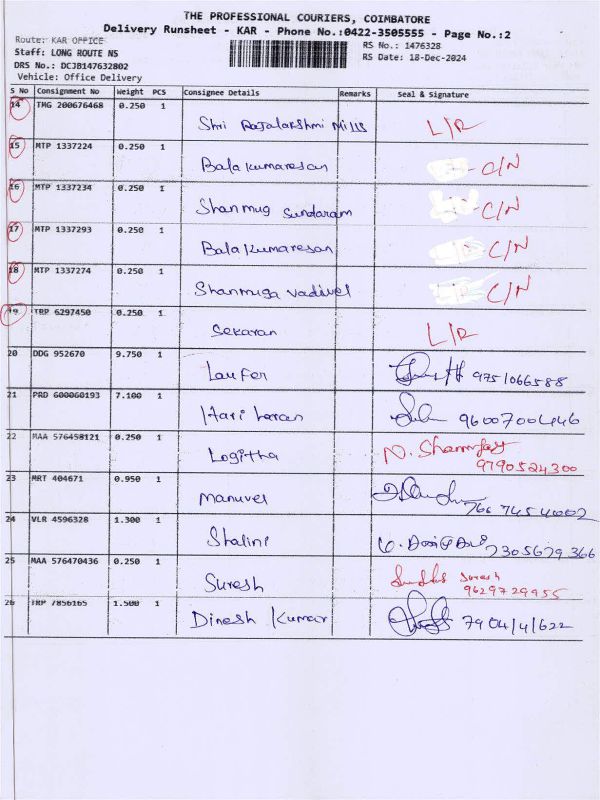 THE PROFESSIONAL COURIERS, COIMBATORE
Delivery Runsheet - KAR - Phone No.:0422-3505555 - Page No.:2
Route: KAR OFFICE
Staff: LONG ROUTE NS
DRS No.: DCJB147632802
Vehicle: Office Delivery
RS No.: 1476328
RS Date: 18-Dec-2024
S No Consignment No Weight PCS Consignee Details Remarks Seal & Signature
14 TMG 200676468 0.250 1 Shri Rajalakshmi Mills L/R
15 MTP 1337224 0.250 1 Balakumaresan C/N
16 MTP 1337234 0.250 1 Shanmug Sundaram C/N
17 MTP 1337293 0.250 1 Balakumaresan C/N
18 MTP 1337274 0.250 1 Shanmuga vadivel C/N
19 TRP 6297450 0.250 1 Sekaran L/R
20 DDG 952670 9.750 1 Laufer 9751066588
21 PRD 600060193 7.100 1 Hari haran 96007004446
22 MAA 576458121 0.250 1 Logitha N.
9790524300
23 MRT 404671 0.950 1 Manuvel
24 VLR 4596328 1.300 1 Shalini 7305679366
25 MAA 576470436 0.250 1 Suresh Suresh
9629729955
26 TRP 7856165 1.500 1 Dinesh Kumar